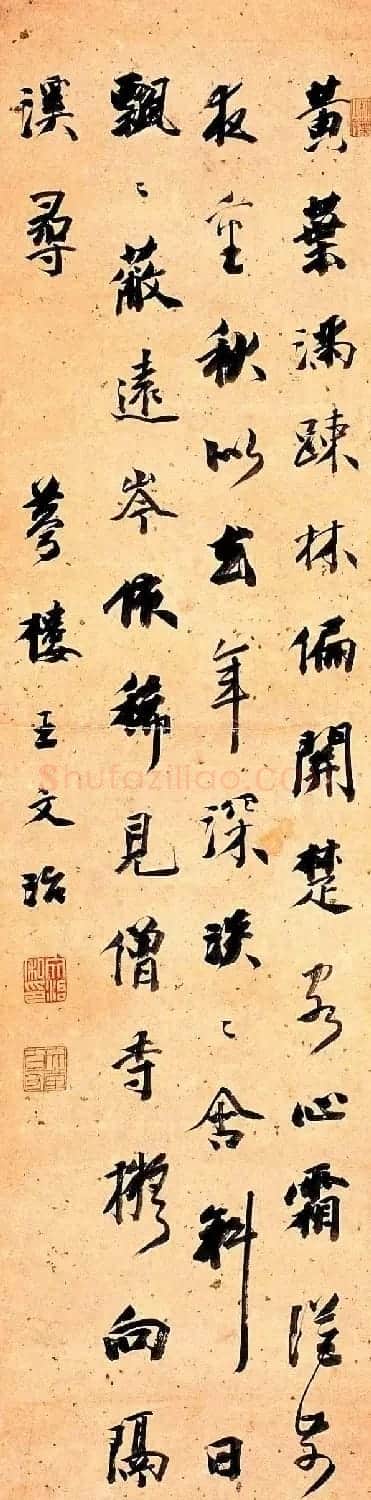 黃葉滿疎林偏開楚客心霜從前
夜重秋似去年深淡〻含斜日
飄〻蔽遠岑依稀見僧寺擬向隔
溪尋
夢樓王文治
Shufaziliao.co